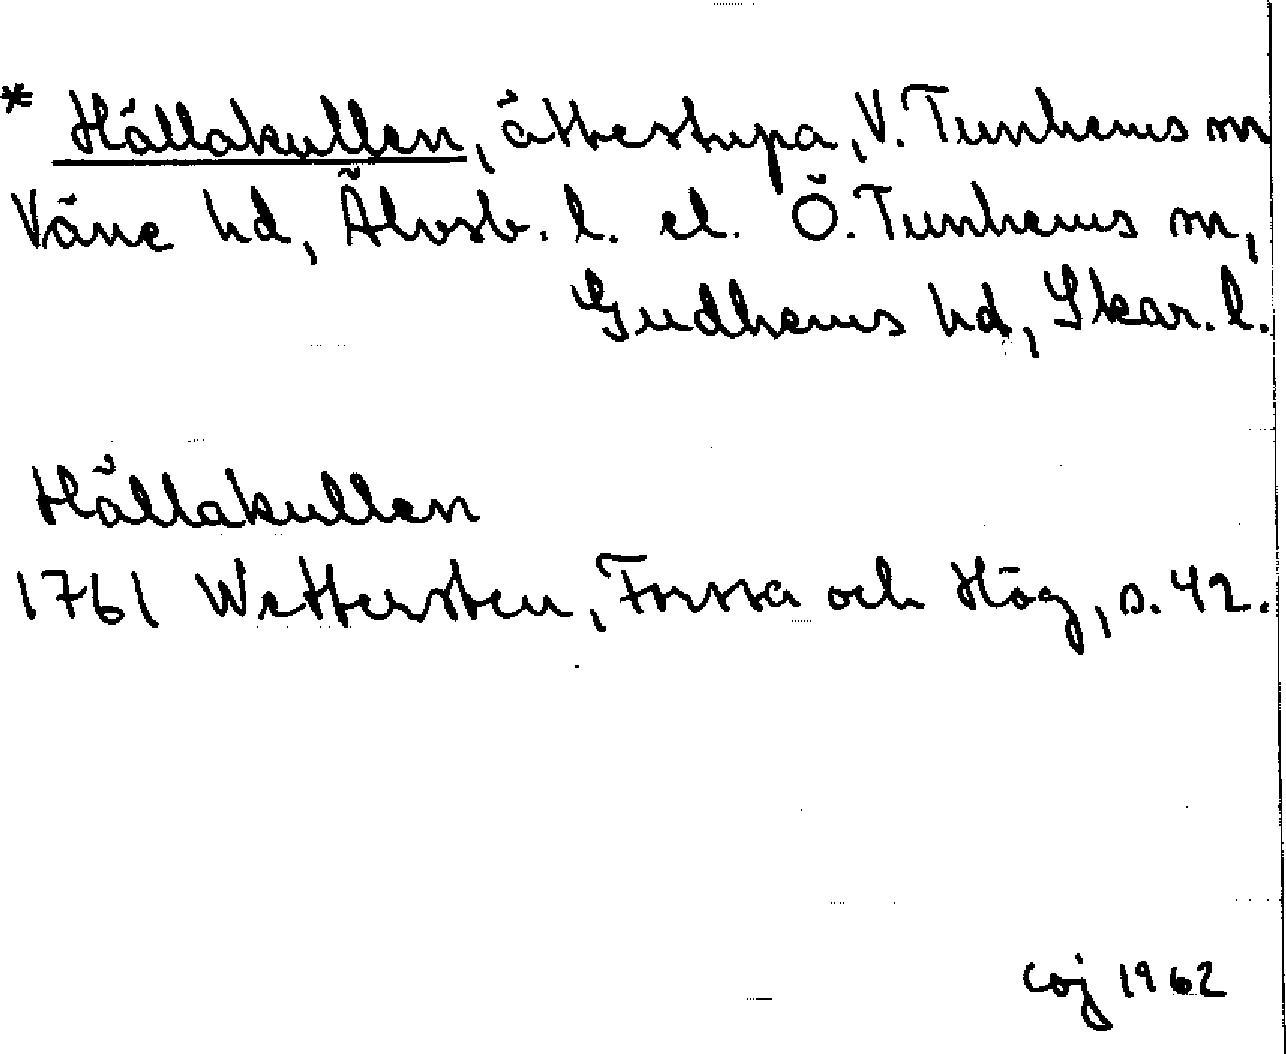 * Hällakullen, ättestupa, V. Tunhems sn
Väne hd, Älvsb. l. el. Ö. Tunhems sn,
Gudhems hd, Skar. l.
Hällakullen
1761 Wettersten, Forssa och Hög, s. 42.
coj 1962